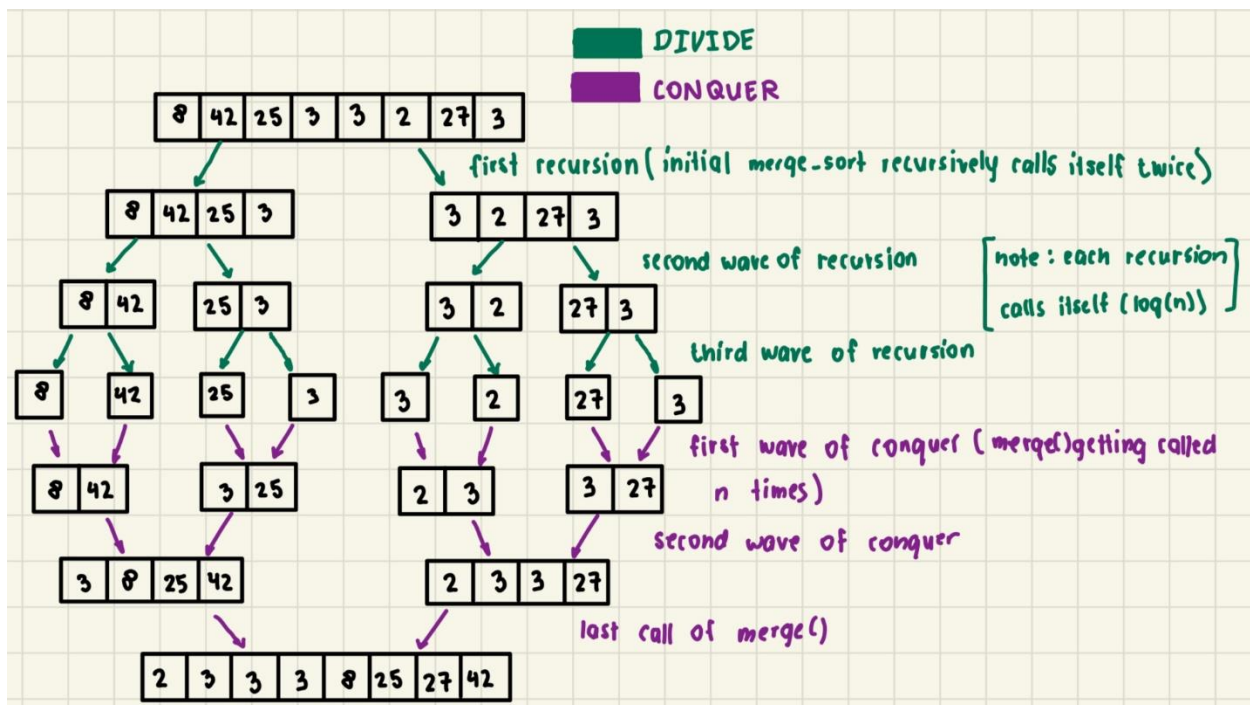 DIVIDE
CONQUER
8 42 25 3 3 2 27 3
first recursion (initial merge_sort recursively calls itself twice)
8 42 25 3 3 2 27 3
second wave of recursion
[note: each recursion
calls itself (log(n))]
8 42 25 3 3 2 27 3
third wave of recursion
8 42 25 3 3 2 27 3
first wave of conquer (merge() getting called
n times)
8 42 3 25 2 3 3 27
second wave of conquer
3 8 25 42 2 3 3 27
last call of merge()
2 3 3 3 8 25 27 42